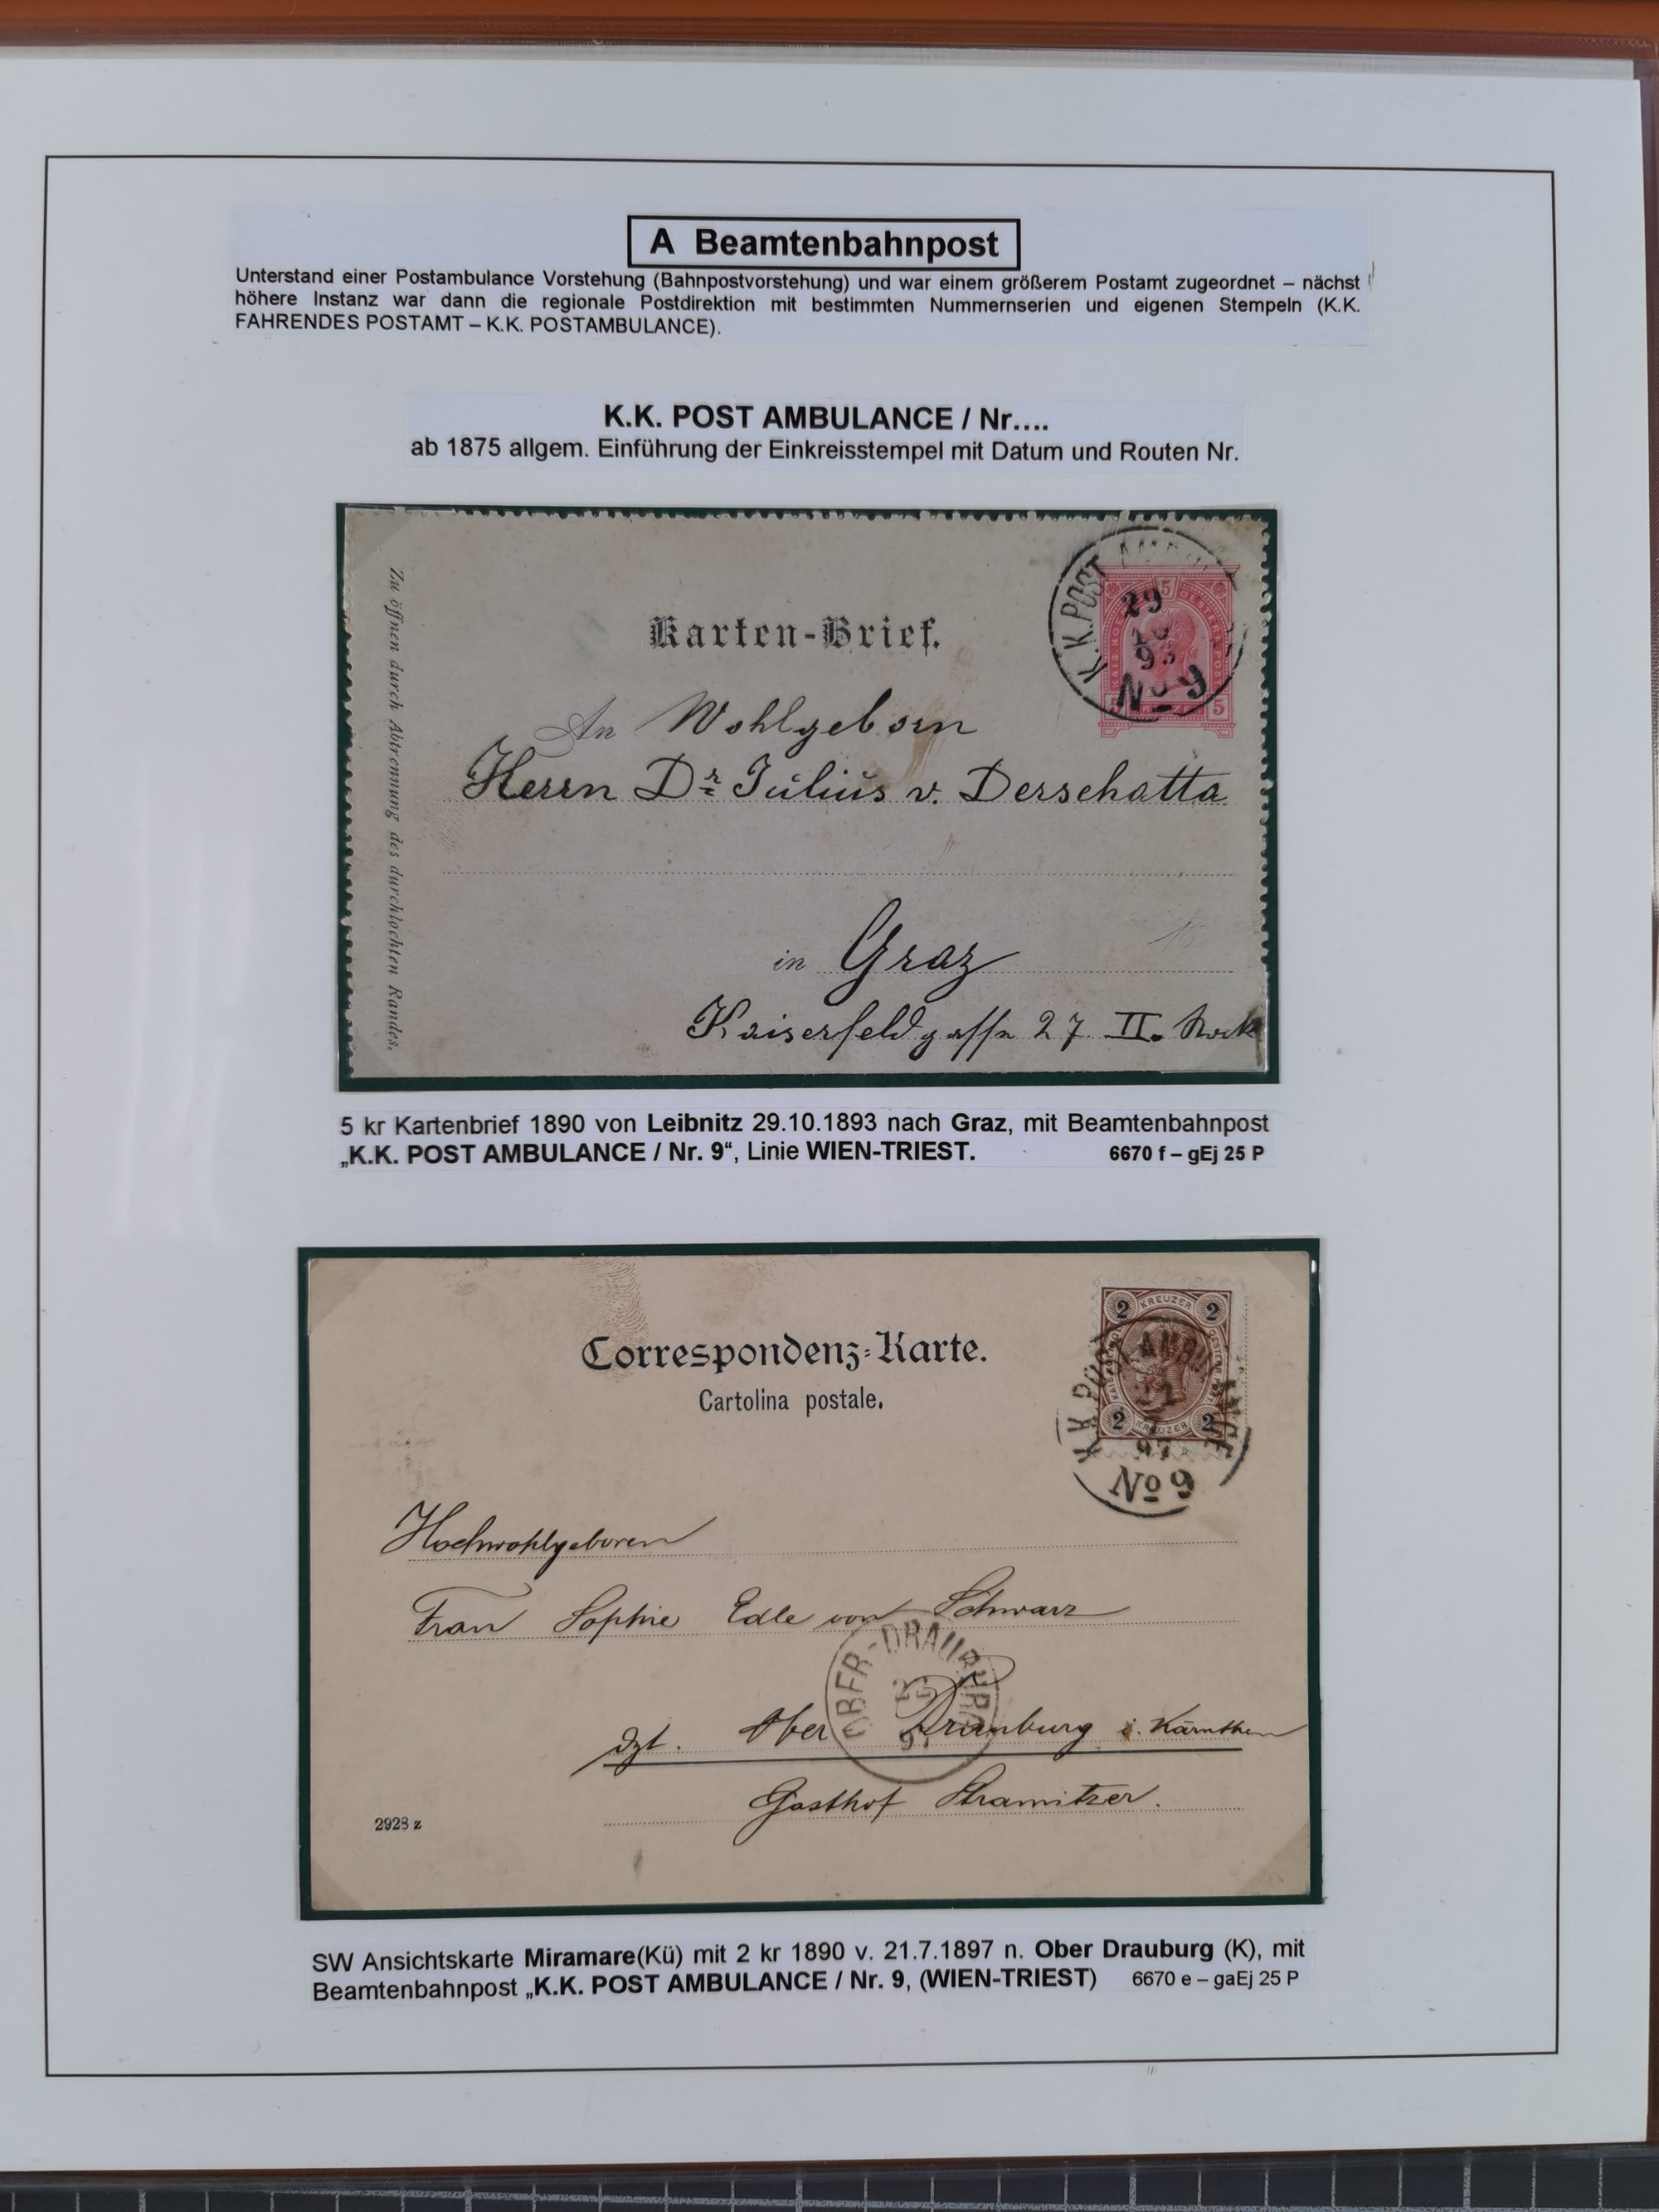 A Beamtenbahnpost
Unterstand einer Postambulance Vorstehung (Bahnpostvorstehung) und war einem größerem Postamt zugeordnet – nächst
höhere Instanz war dann die regionale Postdirektion mit bestimmten Nummernserien und eigenen Stempeln (K.K.
FAHRENDES POSTAMT – K.K. POSTAMBULANCE).
K.K. POST AMBULANCE / Nr....
ab 1875 allgem. Einführung der Einkreisstempel mit Datum und Routen Nr.
Zu öffnen durch Abtrennung des durchlochten Randes.
K.K. POST
29
10
93
No 9
5
5
5
Karten-Brief.
An Wohlgeborn
Herrn Dr. Julius v. Derschatta
in Graz
Kaiserfeldgasse 27 II. Stock
5 kr Kartenbrief 1890 von Leibnitz 29.10.1893 nach Graz, mit Beamtenbahnpost
„K.K. POST AMBULANCE / Nr. 9“, Linie WIEN-TRIEST. 6670 f – gEj 25 P
2 KREUZER 2
2 KREUZER 2
K.K. POST AMBULANCE
97
No 9
Correspondenz-Karte.
Cartolina postale.
Hochwohlgeboren
Frau Sophie Edle von Schwarz
OBER-DRAUBURG
dzt. Ober Drauburg i. Kärnthen
Gasthof Stramitzer.
2928 z
SW Ansichtskarte Miramare(Kü) mit 2 kr 1890 v. 21.7.1897 n. Ober Drauburg (K), mit
Beamtenbahnpost „K.K. POST AMBULANCE / Nr. 9, (WIEN-TRIEST) 6670 e – gaEj 25 P